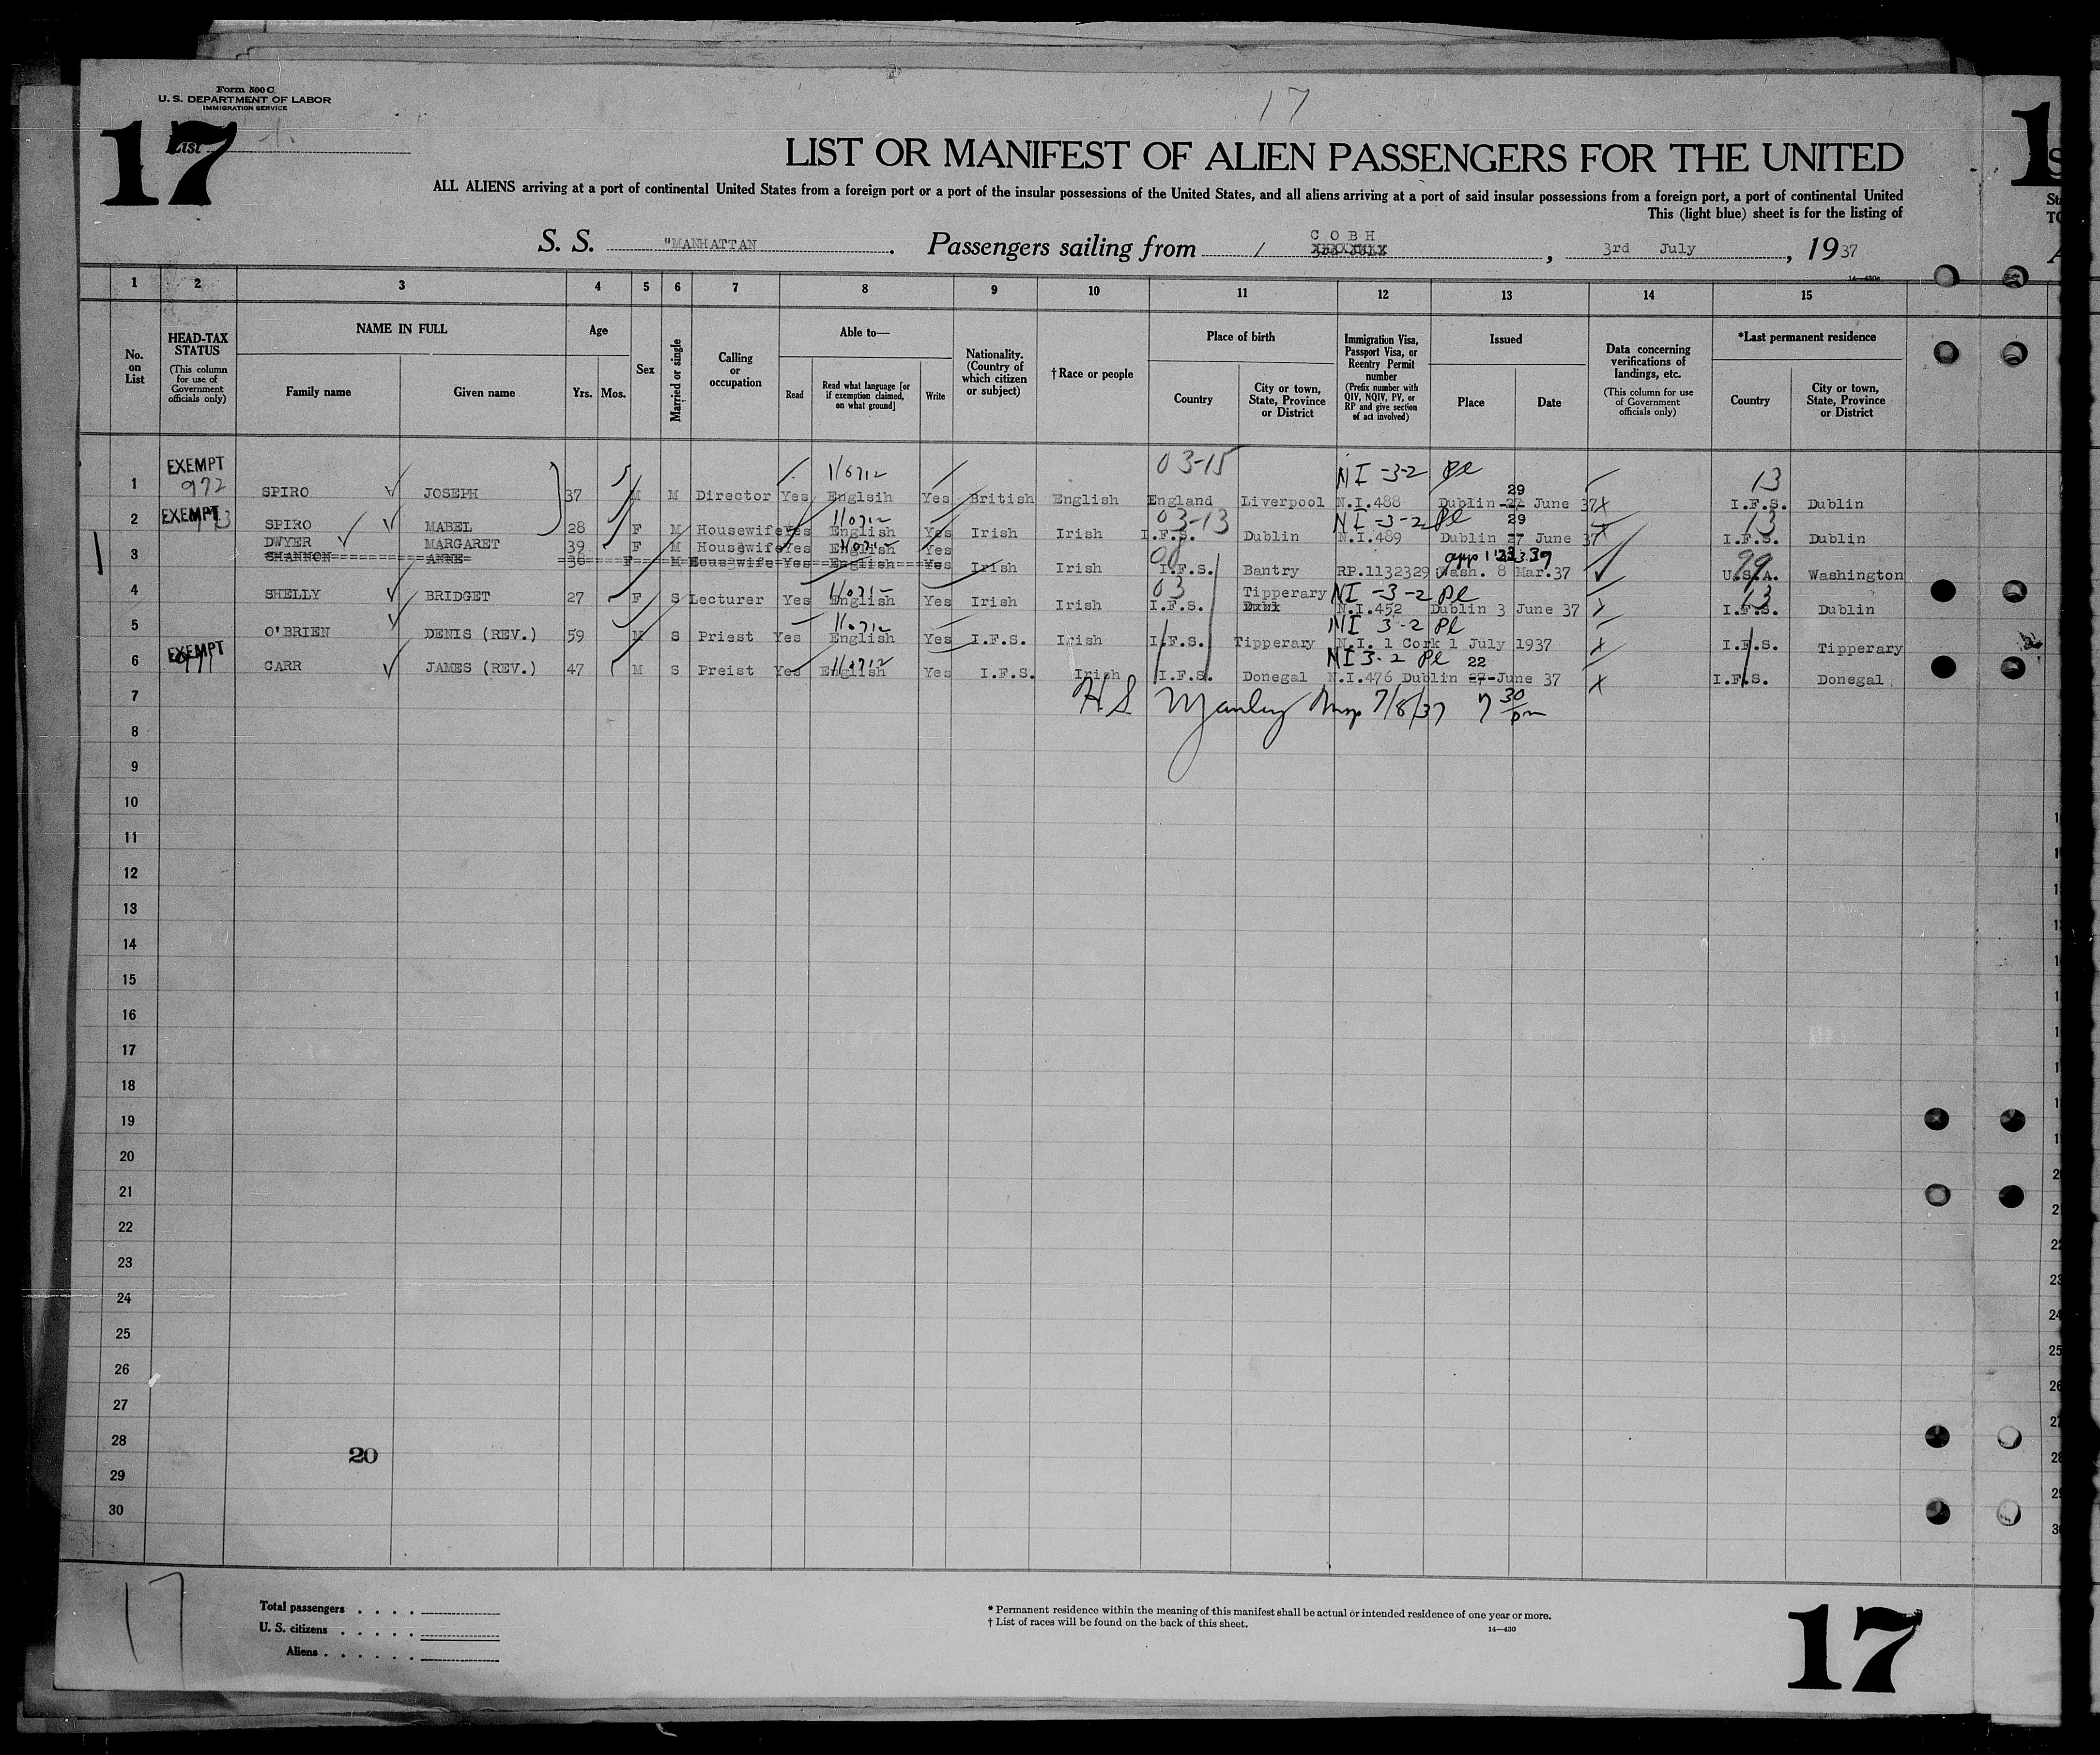 Form 500 C
U. S. DEPARTMENT OF LABOR
IMMIGRATION SERVICE
17
List
17
LIST OR MANIFEST OF ALIEN PASSENGERS FOR THE UNITED
ALL ALIENS arriving at a port of continental United States from a foreign port or a port of the insular possessions of the United States, and all aliens arriving at a port of said insular possessions from a foreign port, a port of continental United
This (light blue) sheet is for the listing of
S. S. "MANHATTAN . Passengers sailing from COBH , 3rd July , 19 37
14—430a
1 2 3 4 5 6 7 8 9 10 11 12 13 14 15
No. on List
HEAD-TAX STATUS (This column for use of Government officials only)
NAME IN FULL Family name Given name
Age Yrs. Mos.
Sex
Married or single
Calling or occupation
Able to— Read Read what language [or if exemption claimed, on what ground] Write
Nationality. (Country of which citizen or subject)
†Race or people
Place of birth Country City or town, State, Province or District
Immigration Visa, Passport Visa, or Reentry Permit number (Prefix number with QIV, NQIV, PV, or RP and give section of act involved)
Issued Place Date
Data concerning verifications of landings, etc. (This column for use of Government officials only)
*Last permanent residence Country City or town, State, Province or District
EXEMPT 110712 03-15 NI -3-2 Pl 13
1 972 SPIRO JOSEPH 37 M M Director Yes Englsih Yes British English England Liverpool N.I.488 Dublin 27 29 June 37 I.F.S. Dublin
EXEMPT 110712 03-13 NI -3-2 Pl 13
2 SPIRO MABEL 28 F M Housewife Yes English Yes Irish Irish I.F.S. Dublin N.I.489 Dublin 27 29 June 37 I.F.S. Dublin
DWYER MARGARET 39 F M Housewife Yes English Yes
3 SHANNON ANNE 38 F M Housewife Yes English Yes Irish Irish I.F.S. Bantry RP.1132329 Wash. 8 Mar.37 U.S.A. Washington
99
03 NI -3-2 Pl 13
4 SHELLY BRIDGET 27 F S Lecturer Yes English Yes Irish Irish I.F.S. Tipperary N.I.452 Dublin 3 June 37 I.F.S. Dublin
110712 NI 3-2 Pl
5 O'BRIEN DENIS (REV.) 59 M S Priest Yes English Yes I.F.S. Irish I.F.S. Tipperary N.I. 1 Cork 1 July 1937 I.F.S. Tipperary
EXEMPT 110712 NI 3-2 Pl 22
6 CARR JAMES (REV.) 47 M S Preist Yes English Yes I.F.S. Irish I.F.S. Donegal N.I.476 Dublin 27 June 37 I.F.S. Donegal
7 H S Manley Insp 7/8/37 7 30 pm
8
9
10
11
12
13
14
15
16
17
18
19
20
21
22
23
24
25
26
27
28
20
29
30
17
Total passengers . . . .
U. S. citizens . . . . .
Aliens . . . . . .
* Permanent residence within the meaning of this manifest shall be actual or intended residence of one year or more.
† List of races will be found on the back of this sheet.
14—430
17